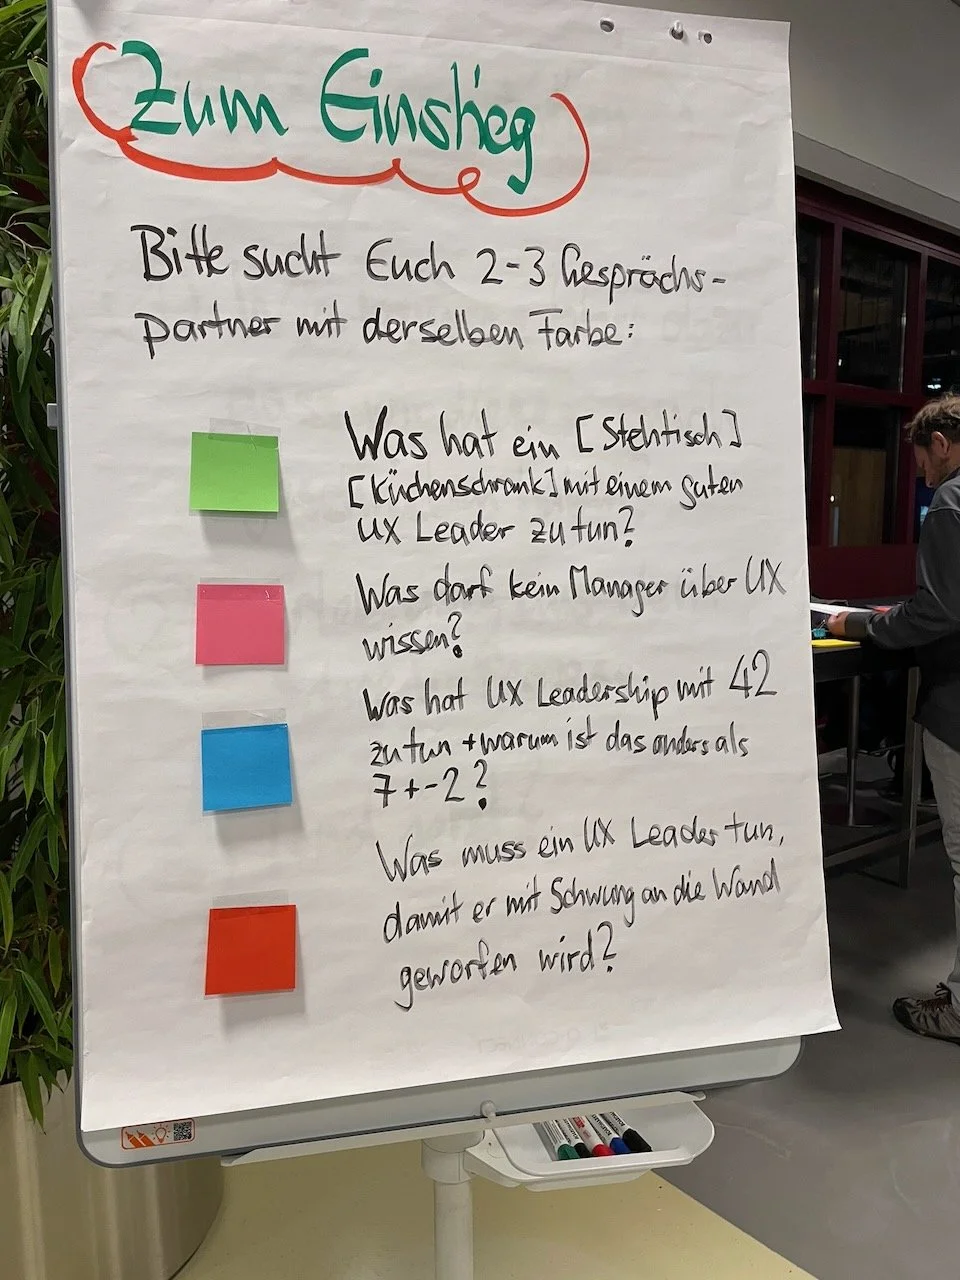 Zum Einstieg
Bitte sucht Euch 2-3 Gesprächs-
partner mit derselben Farbe:
Was hat ein [Stehtisch]
[Küchenschrank] mit einem guten
UX Leader zu tun?
Was darf kein Manager über UX
wissen?
Was hat UX Leadership mit 42
zu tun + warum ist das anders als
7+-2?
Was muss ein UX Leader tun,
damit er mit Schwung an die Wand
geworfen wird?